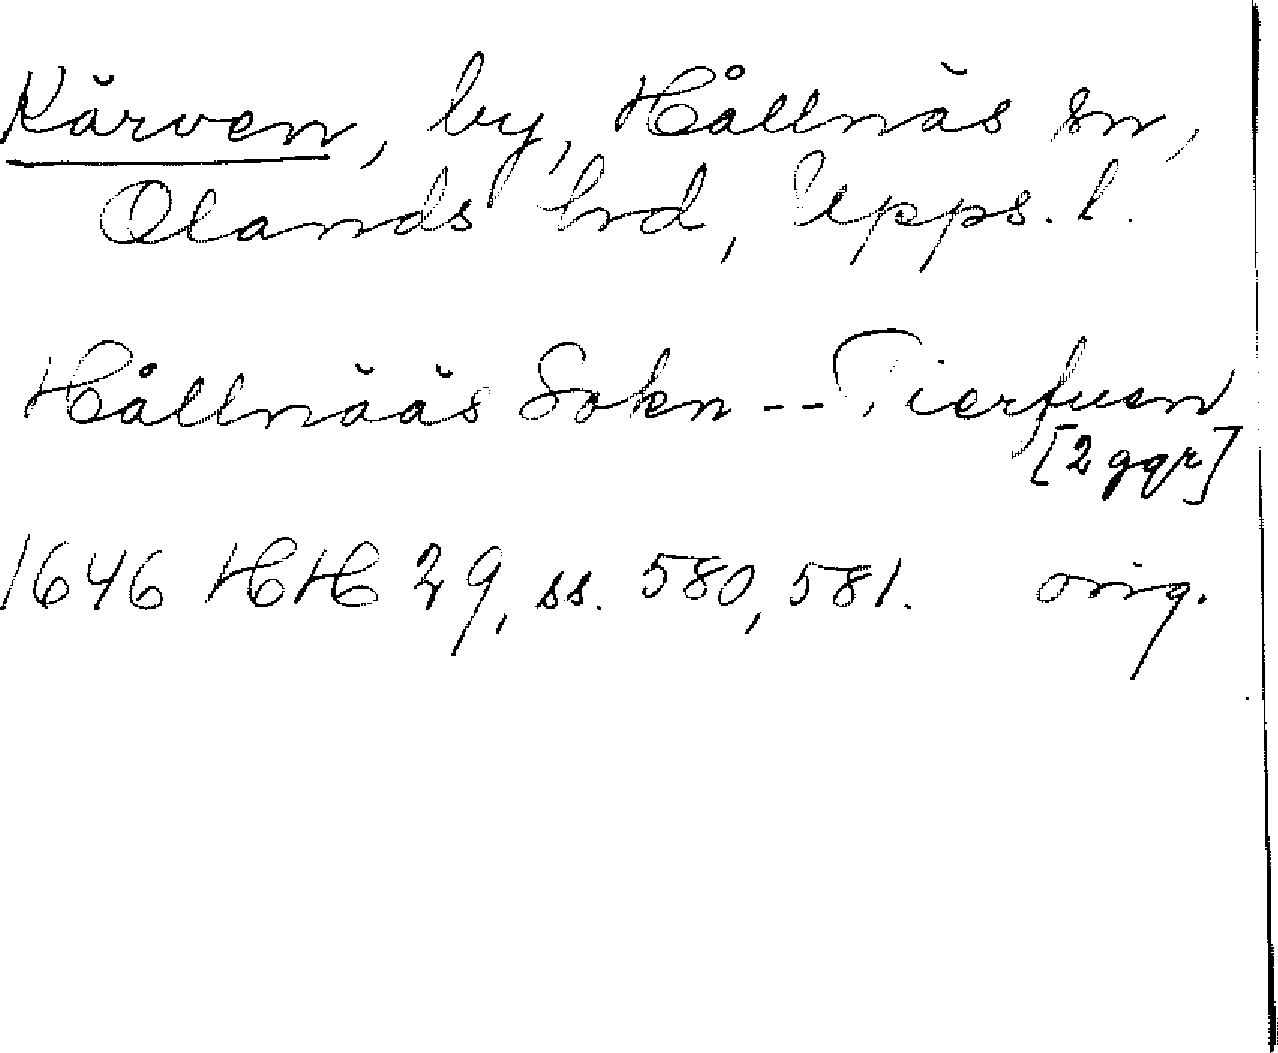 Kärven, by, Hållnäs sn,
Olands hrd, Upps. l.
Hållnääs Sokn -- Tierfuen
[2 ggr]
1646 HH 29, ss. 580, 581. orig.